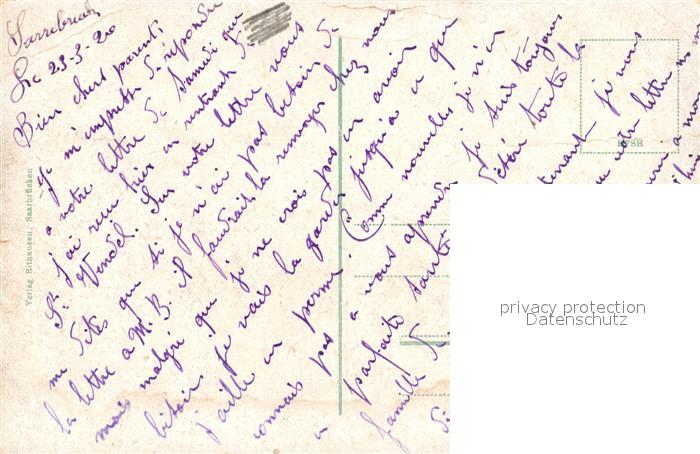 Sarrebruck
Le 23-3-20
Bien chers parents
Je m'empresse de répondre
a votre lettre de Samedi que
j'ai reçu hier en rentrant de
St Wendel. Sur votre lettre vous
me dites que si je n'ai pas besoin de
la lettre a M. B. il faudrait la renvoyer chez nous
mais malgré que je ne crois pas en avoir
besoin je vais la garder jusqu'a ce que
j'aille en perme. Comme nouvelles je n'en
connais pas a vous apprendre je suis toujours
en parfaite santé toute la
famille de
je vous
votre lettre
Verlag Rithausen, Saarbrücken
privacy protection
Datenschutz